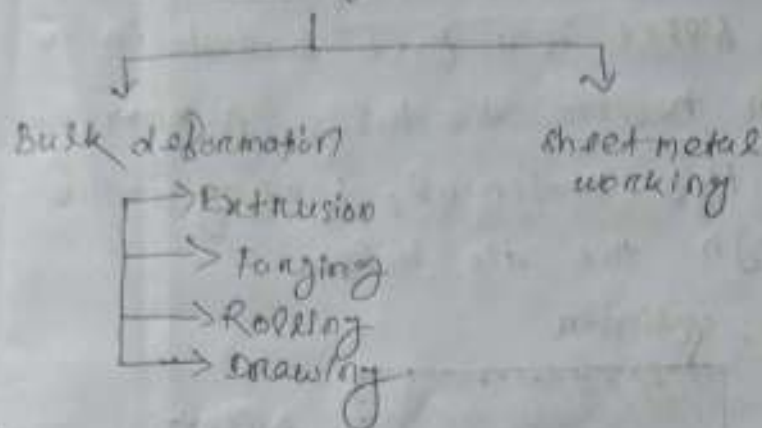 Bulk deformation
sheet metal
working
Extrusion
Forging
Rolling
Drawing